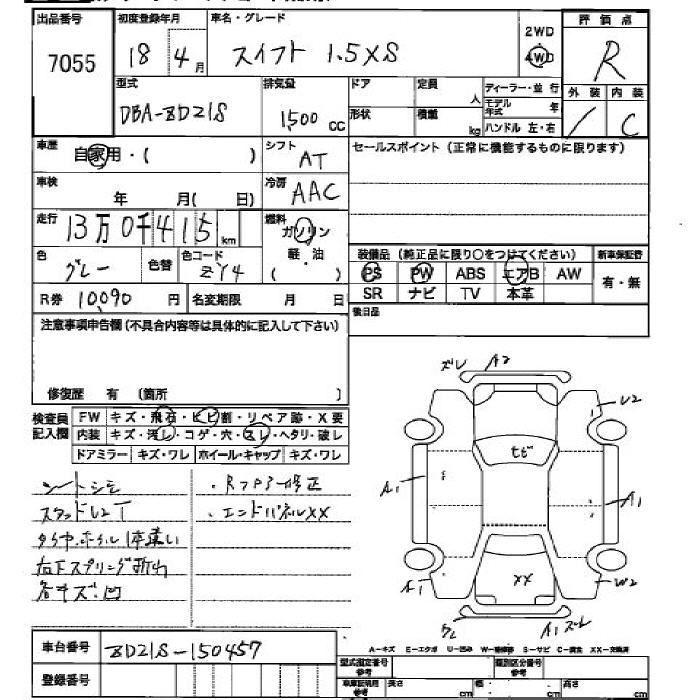 出品番号 初度登録年月 車名・グレード 2WD 評価点
7055 18 4月 スイフト 1.5XS 4WD R
型式 排気量 ドア 定員 人 ディーラー・並行 外装 内装
DBA-ZD21S 1,500 cc 形状 積載 kg モデル年式 年 / C
ハンドル 左・右
車歴 自家用・( ) シフト AT セールスポイント(正常に機能するものに限ります)
車検 年 月( 日) 冷房 AAC
走行 13万0千415km 燃料 ガソリン
軽・油
( )
色 グレー 色替 色コード ZY4
装備品(純正品に限り○をつけてください) 新車保証書
PS PW ABS エアB AW 有・無
SR ナビ TV 本革
R券 10,090 円 名変期限 月 日 後日品
注意事項申告欄(不具合内容等は具体的に記入して下さい)
修復歴 有 (箇所 )
検査員記入欄 FW キズ・飛石・ヒビ割・リペア跡・X要
内装 キズ・汚レ・コゲ・穴・スレ・ヘタリ・破レ
ドアミラー キズ・ワレ ホイール・キャップ キズ・ワレ
シートシミ ・Rフロアー修正
・エンドパネルXX
タイヤ,ホイール1本違い
右下スプリング折れ
各キズ凹
ズレ A2
U2
ヒビ
A1 A1
XX
A1 W2
A1 ズレ
車台番号 ZD21S-150457
登録番号
A-キズ E-エクボ U-凹み W-補修跡 S-サビ C-腐食 XX-交換済
型式指定番号 参考 類別区分番号 参考
車庫証明用 参考 長さ cm 幅 cm 高さ cm